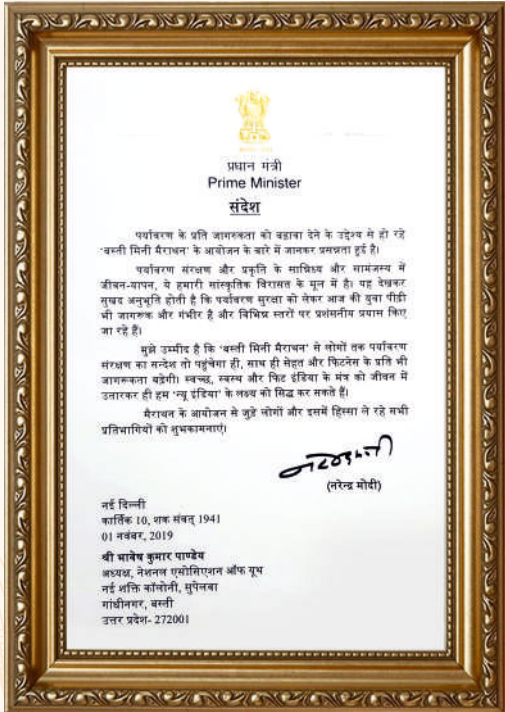 प्रधान मंत्री
Prime Minister
संदेश
पर्यावरण के प्रति जागरूकता को बढ़ावा देने के उद्देश्य से हो रहे
'बस्ती मिनी मैराथन' के आयोजन के बारे में जानकर प्रसन्नता हुई है।
पर्यावरण संरक्षण और प्रकृति के सान्निध्य और सामंजस्य में
जीवन-यापन, ये हमारी सांस्कृतिक विरासत के मूल में है। यह देखकर
सुखद अनुभूति होती है कि पर्यावरण सुरक्षा को लेकर आज की युवा पीढ़ी
भी जागरूक और गंभीर है और विभिन्न स्तरों पर प्रशंसनीय प्रयास किए
जा रहे हैं।
मुझे उम्मीद है कि 'बस्ती मिनी मैराथन' से लोगों तक पर्यावरण
संरक्षण का सन्देश तो पहुंचेगा ही, साथ ही सेहत और फिटनेस के प्रति भी
जागरूकता बढ़ेगी। स्वच्छ, स्वस्थ और फिट इंडिया के मंत्र को जीवन में
उतारकर ही हम 'न्यू इंडिया' के लक्ष्य को सिद्ध कर सकते हैं।
मैराथन के आयोजन से जुड़े लोगों और इसमें हिस्सा ले रहे सभी
प्रतिभागियों को शुभकामनाएं।
(नरेन्द्र मोदी)
नई दिल्ली
कार्तिक 10, शक संवत् 1941
01 नवंबर, 2019
श्री भावेष कुमार पाण्डेय
अध्यक्ष, नेशनल एसोसिएशन ऑफ यूथ
नई शक्ति कॉलोनी, सुपेलवा
गांधीनगर, बस्ती
उत्तर प्रदेश- 272001